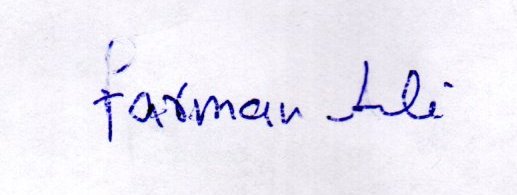 Farman Ali